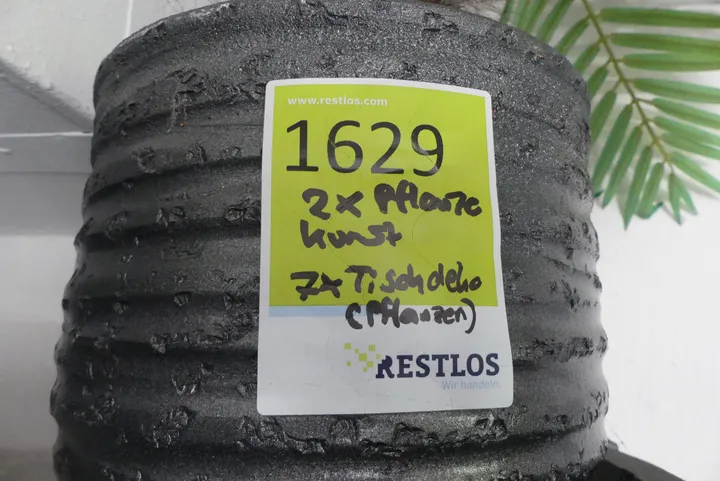 www.restlos.com
1629
2x Pflanze
Kunst
7x Tischdeko
(Pflanzen)
RESTLOS
Wir handeln.